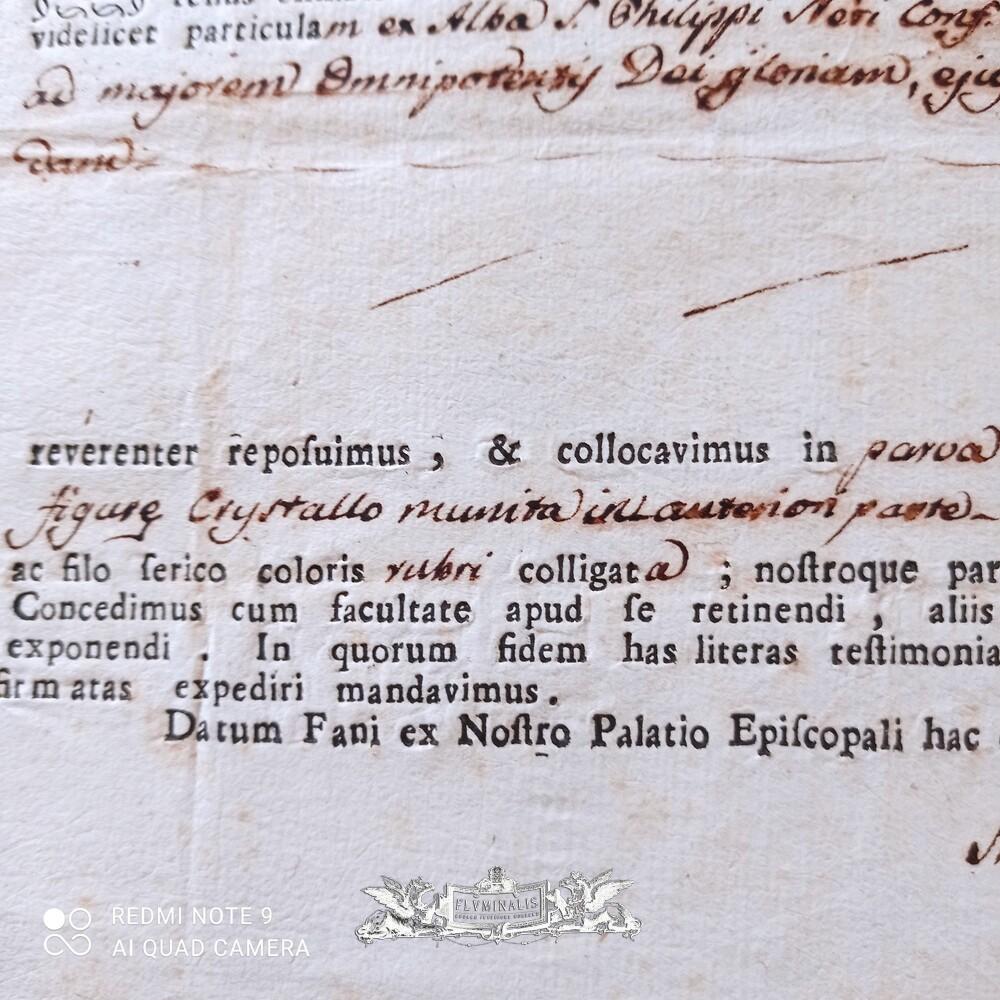 videlicet particulam ex Alba S. Philippi Neri Conf.
ad majorem Omnipotentis Dei gloriam, ejus
reverenter repoſuimus , & collocavimus in parva
figure Crystallo munita in anteriori parte
ac filo ſerico coloris rubri colligata ; noſtroque par
Concedimus cum facultate apud ſe retinendi , aliis
exponendi . In quorum fidem has literas teſtimonia
firmatas expediri mandavimus .
Datum Fani ex Noſtro Palatio Epiſcopali hac
FLVMINALIS
REDMI NOTE 9
AI QUAD CAMERA